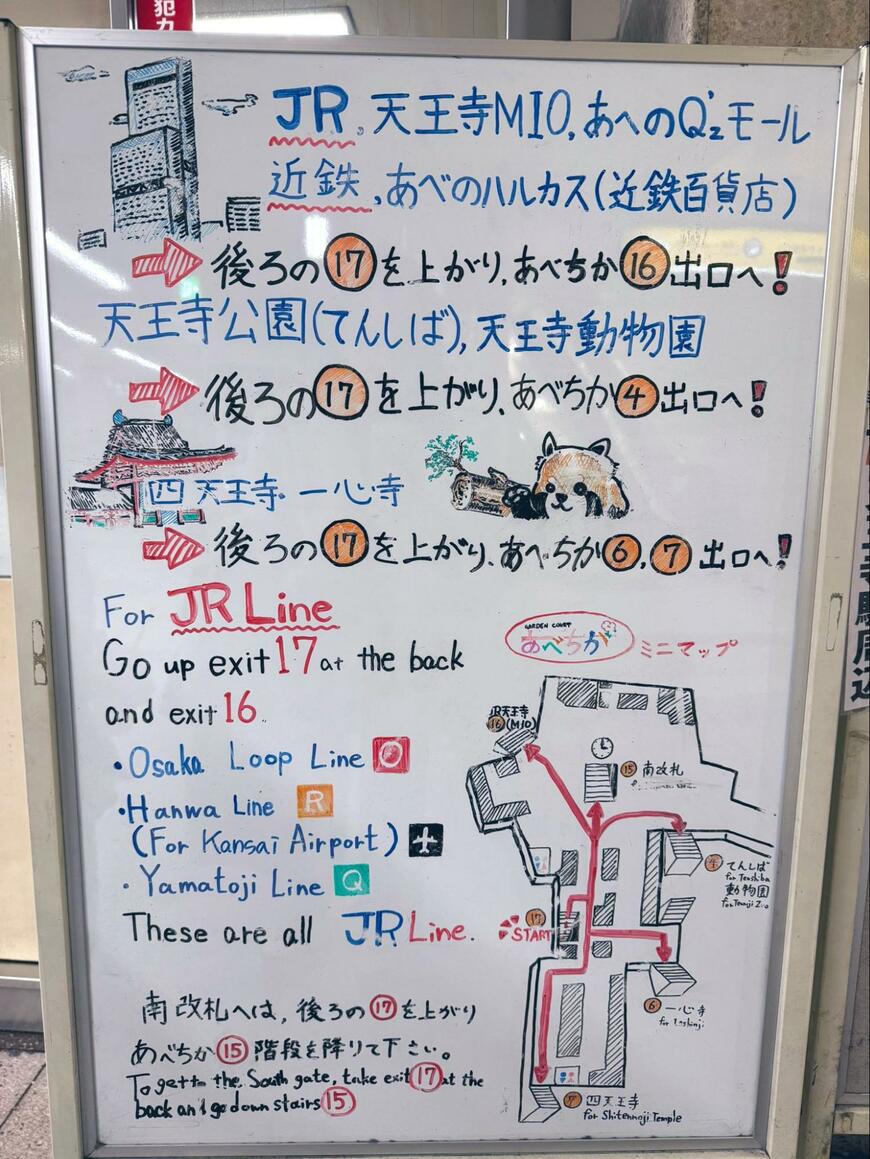 犯
JR, 天王寺MIO, あべのQ'zモール
近鉄, あべのハルカス(近鉄百貨店)
後ろの⑰を上がり、あべちか⑯出口へ!
天王寺公園(てんしば), 天王寺動物園
後ろの⑰を上がり、あべちか④出口へ!
四天王寺・一心寺
後ろの⑰を上がり、あべちか⑥,⑦出口へ!
For JR Line
Go up exit 17 at the back
and exit 16
・Osaka Loop Line O
・Hanwa Line R
(For Kansai Airport)
・Yamatoji Line Q
These are all JR Line.
南改札へは、後ろの⑰を上がり
あべちか⑮階段を降りて下さい。
To get to the South gate, take exit ⑰ at the
back and go down stairs ⑮
GARDEN COURT
あべちか ミニマップ
JR天王寺
⑯ (MIO)
⑮ 南改札
てんしば
for Tenshiba
動物園
for Tennoji Zoo
⑰
START
⑥ 一心寺
for Isshinji
⑦ 四天王寺
for Shitennoji Temple